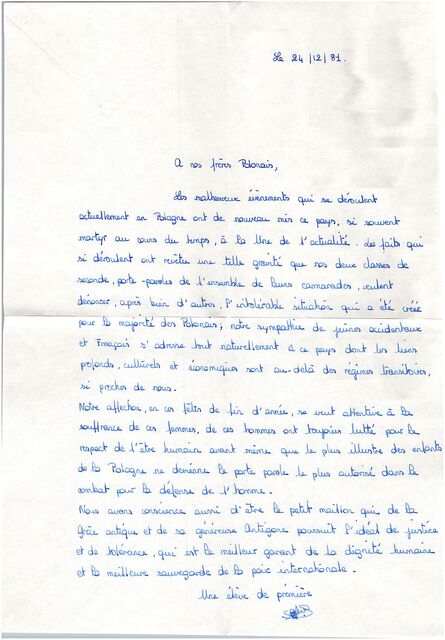 Le 24/12/81.
A nos frères Polonais,
Les malheureux évènements qui se déroulent
actuellement en Pologne ont de nouveau mis ce pays, si souvent
martyr au cours du temps, à la Une de l'actualité. Les faits qui
si déroulent ont revêtu une telle gravité que nos deux classes de
seconde, porte-paroles de l'ensemble de leurs camarades, veulent
dénoncer, après bien d'autres, l'intolérable situation qui a été créé
pour la majorité des Polonais; notre sympathie de jeunes occidentaux
et Français s'adresse tout naturellement à ce pays dont les liens
profonds, culturels et économiques sont au-delà des régimes transitoires,
si proches de nous.
Notre affection, en ces fêtes de fin d'année, se veut attentive à la
souffrance de ces femmes, de ces hommes ont toujours lutté pour le
respect de l'être humain avant même que le plus illustre des enfants
de la Pologne ne devienne le porte parole le plus autorisé dans le
combat pour la défense de l'homme.
Nous avons conscience aussi d'être le petit maillon qui de la
Grèce antique et de sa généreuse Antigone poursuit l'idéal de justice
et de tolérance, qui est le meilleur garant de la dignité humaine
et la meilleure sauvegarde de la paix internationale.
Une élève de première